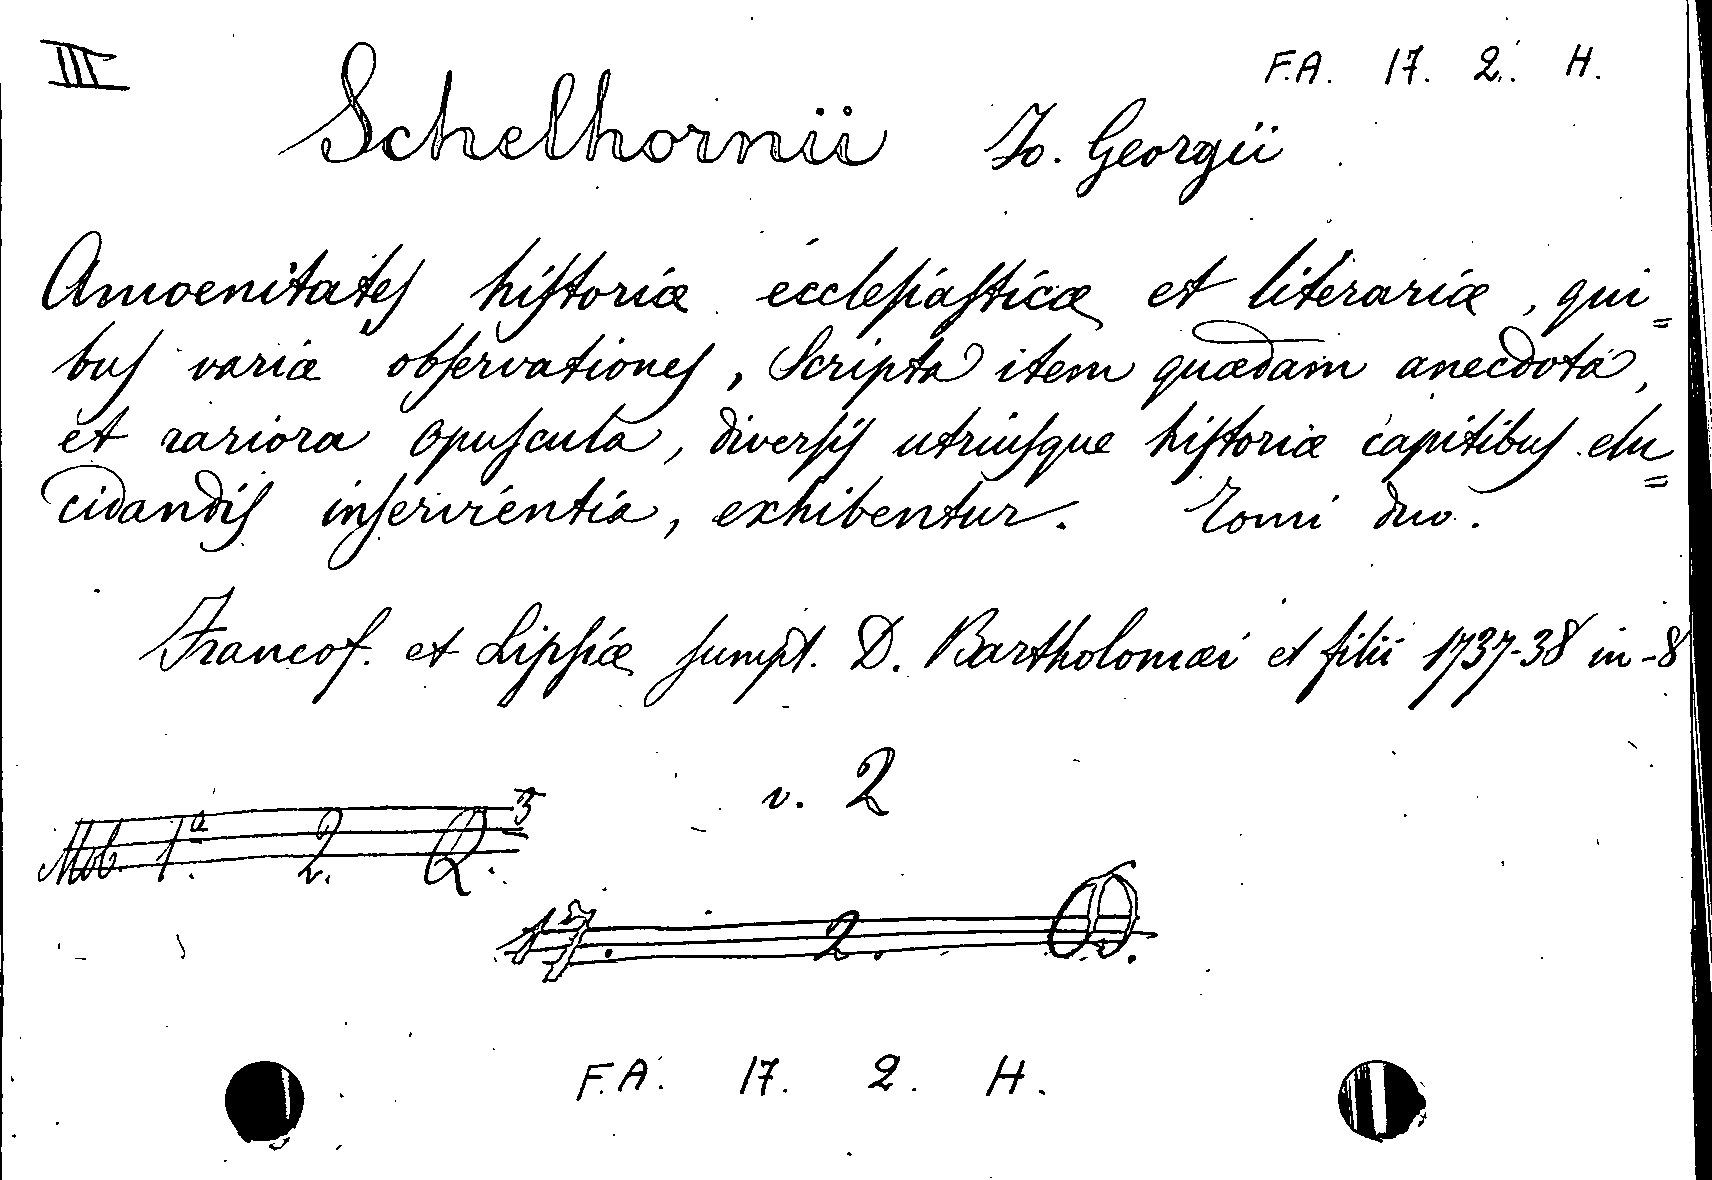 III
F.A. 17. 2. H.
Schelhornii Jo. Georgii
Amoenitates historiæ ecclesiasticæ et literariæ, qui=
bus variæ observationes, Scripta item quædam anecdota,
et rariora opuscula, diversis utriusque historiæ capitibus elu=
cidandis inservientia, exhibentur. Tomi duo.
Francof. et Lipsiæ sumpt. D. Bartholomæi et filii 1737-38 in-8
v. 2
Mob. 1.ª 2. Q.3
17. 2. D.
F.A. 17. 2. H.